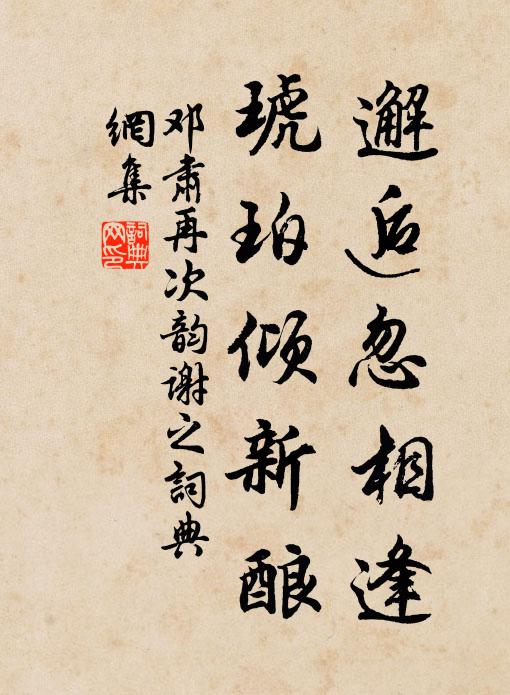 邂逅忽相逢
琥珀倾新酿
邓肃再次韵谢之詞典
網集
詞典
网印